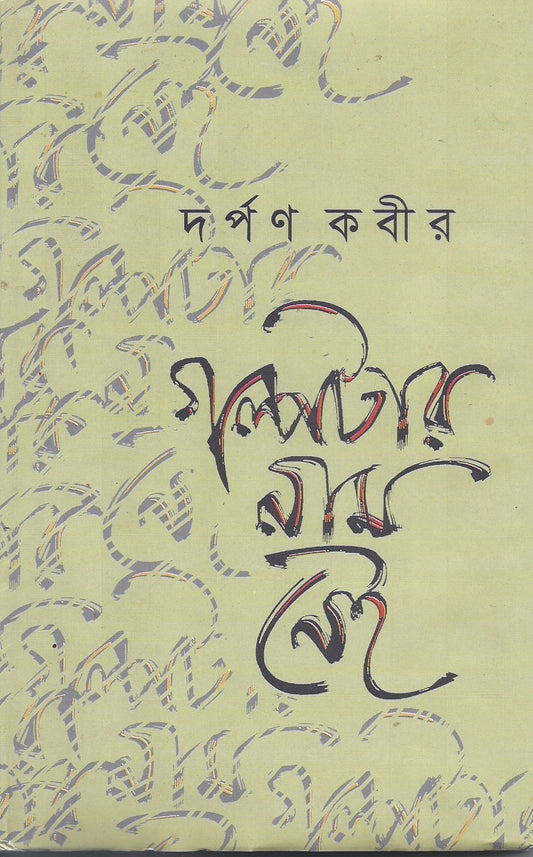 দর্পণ কবীর
গল্পটার
নাম
নেই